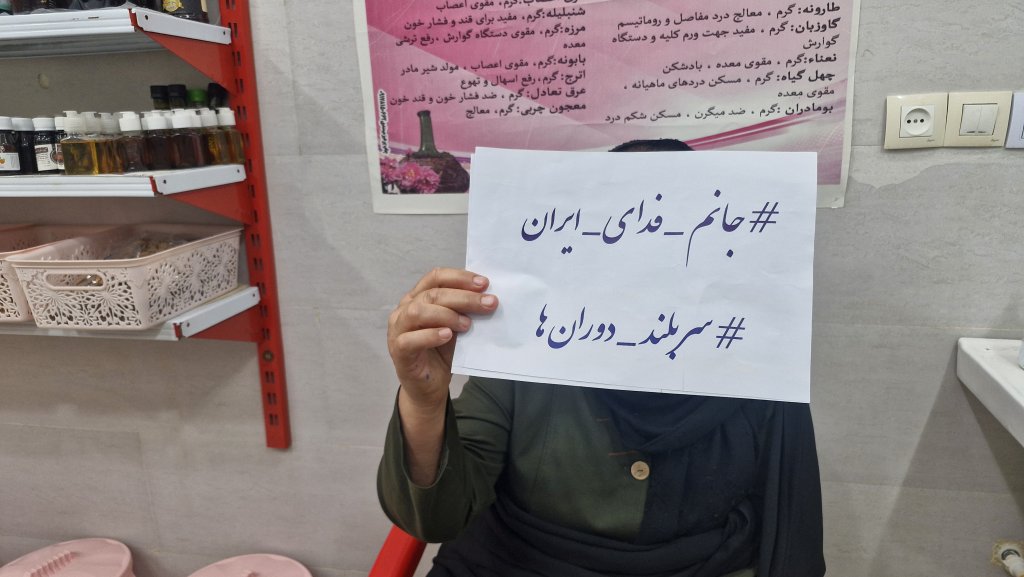 طارونه: گرم ، معالج درد مفاصل و روماتیسم
گاوزبان: گرم ، مفید جهت ورم کلیه و دستگاه
گوارش
نعناء: گرم ، مقوی معده ، بادشکن
چهل گیاه: گرم ، مسکن دردهای ماهیانه ،
مقوی معده
بومادران: گرم ، ضد میگرن ، مسکن شکم درد
گرم، مقوی اعصاب
شنبلیله: گرم، مفید برای قند و فشار خون
مرزه: گرم، مقوی دستگاه گوارش، رفع ترشی
معده
بابونه: گرم، مقوی اعصاب ، مولد شیر مادر
اترج: گرم، رفع اسهال و تهوع
عرق تعادل: گرم ، ضد فشار خون و قند خون
معجون چربی: گرم ، معالج
#جانم_فدای_ایران
#سربلند_دوران‌ها